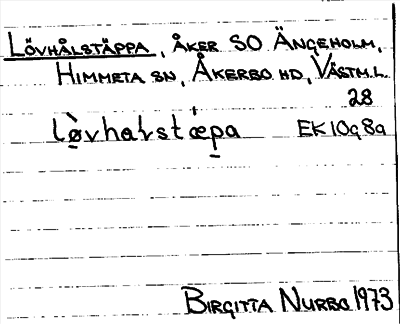 LÖVHÅLSTÄPPA, ÅKER SO ÄNGEHOLM,
HIMMETA SN, ÅKERBO HD, VÄSTM.L.
28
lø̀vhalstæpa EK10g8a
BIRGITTA NURBO 1973